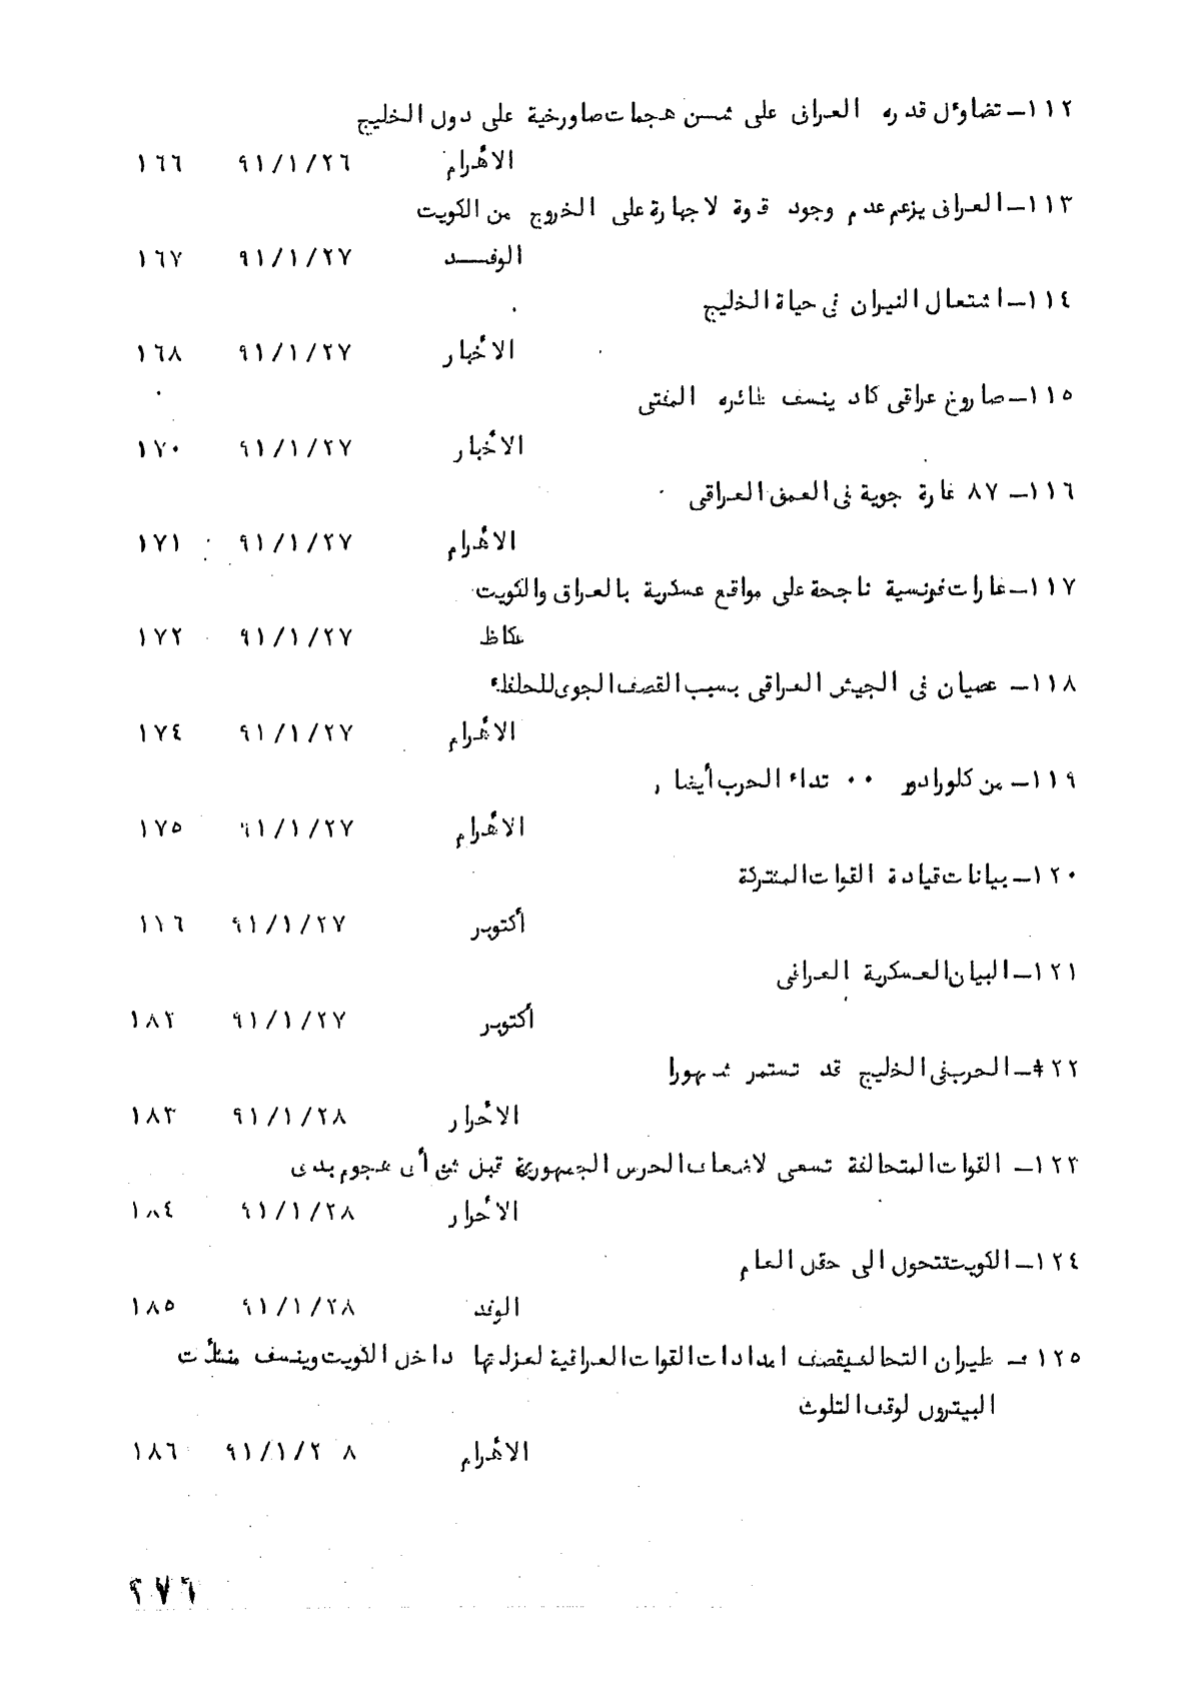 ١١٢ـ تضاؤل قدره العراق على شـن هجمات صاورخية على دول الخليج
الأهرام ٩١/١/٢٦ ١٦٦
١١٣ـ العراق يزعم عدم وجود قوة لاجهارة على الخروج من الكويت
الوفـــد ٩١/١/٢٧ ١٦٧
١١٤ـ اشتعال النيران فى حياة الخليج
الأخبار ٩١/١/٢٧ ١٦٨
١١٥ـ صاروخ عراقى كاد ينسف طائره المفتى
الأخبار ٩١/١/٢٧ ١٧٠
١١٦ـ ٨٧ غارة جوية فى العمق العراقى
الأهرام ٩١/١/٢٧ ١٧١
١١٧ـ غارات فرنسية ناجحة على مواقع عسكرية بالعراق والكويت
عكاظ ٩١/١/٢٧ ١٧٢
١١٨ـ عصيان فى الجيش العراقى بسبب القصف الجوى للحلفاء
الأهرام ٩١/١/٢٧ ١٧٤
١١٩ـ من كلورادور ٠٠ تداء الحرب أيضا
الأهرام ٩١/١/٢٧ ١٧٥
١٢٠ـ بيانات قيادة القوات المشتركة
أكتوبر ٩١/١/٢٧ ١١٦
١٢١ـ البيان العسكرية العراقى
أكتوبر ٩١/١/٢٧ ١٨٢
١٢٢ـ الحرب فى الخليج قد تستمر شهورا
الأحرار ٩١/١/٢٨ ١٨٣
١٢٣ـ القوات المتحالفة تسعى لاضعاف الحرس الجمهورية قبل شن أى هجوم بدى
الأحرار ٩١/١/٢٨ ١٨٤
١٢٤ـ الكويت تتحول الى حقل العام
الوفد ٩١/١/٢٨ ١٨٥
١٢٥ـ طيران التحالف يقصف امدادات القوات العراقية لعزلتها داخل الكويت وينسف منشأت
البيترول لوقف التلوث
الأهرام ٩١/١/٢٨ ١٨٦
٢٧٦